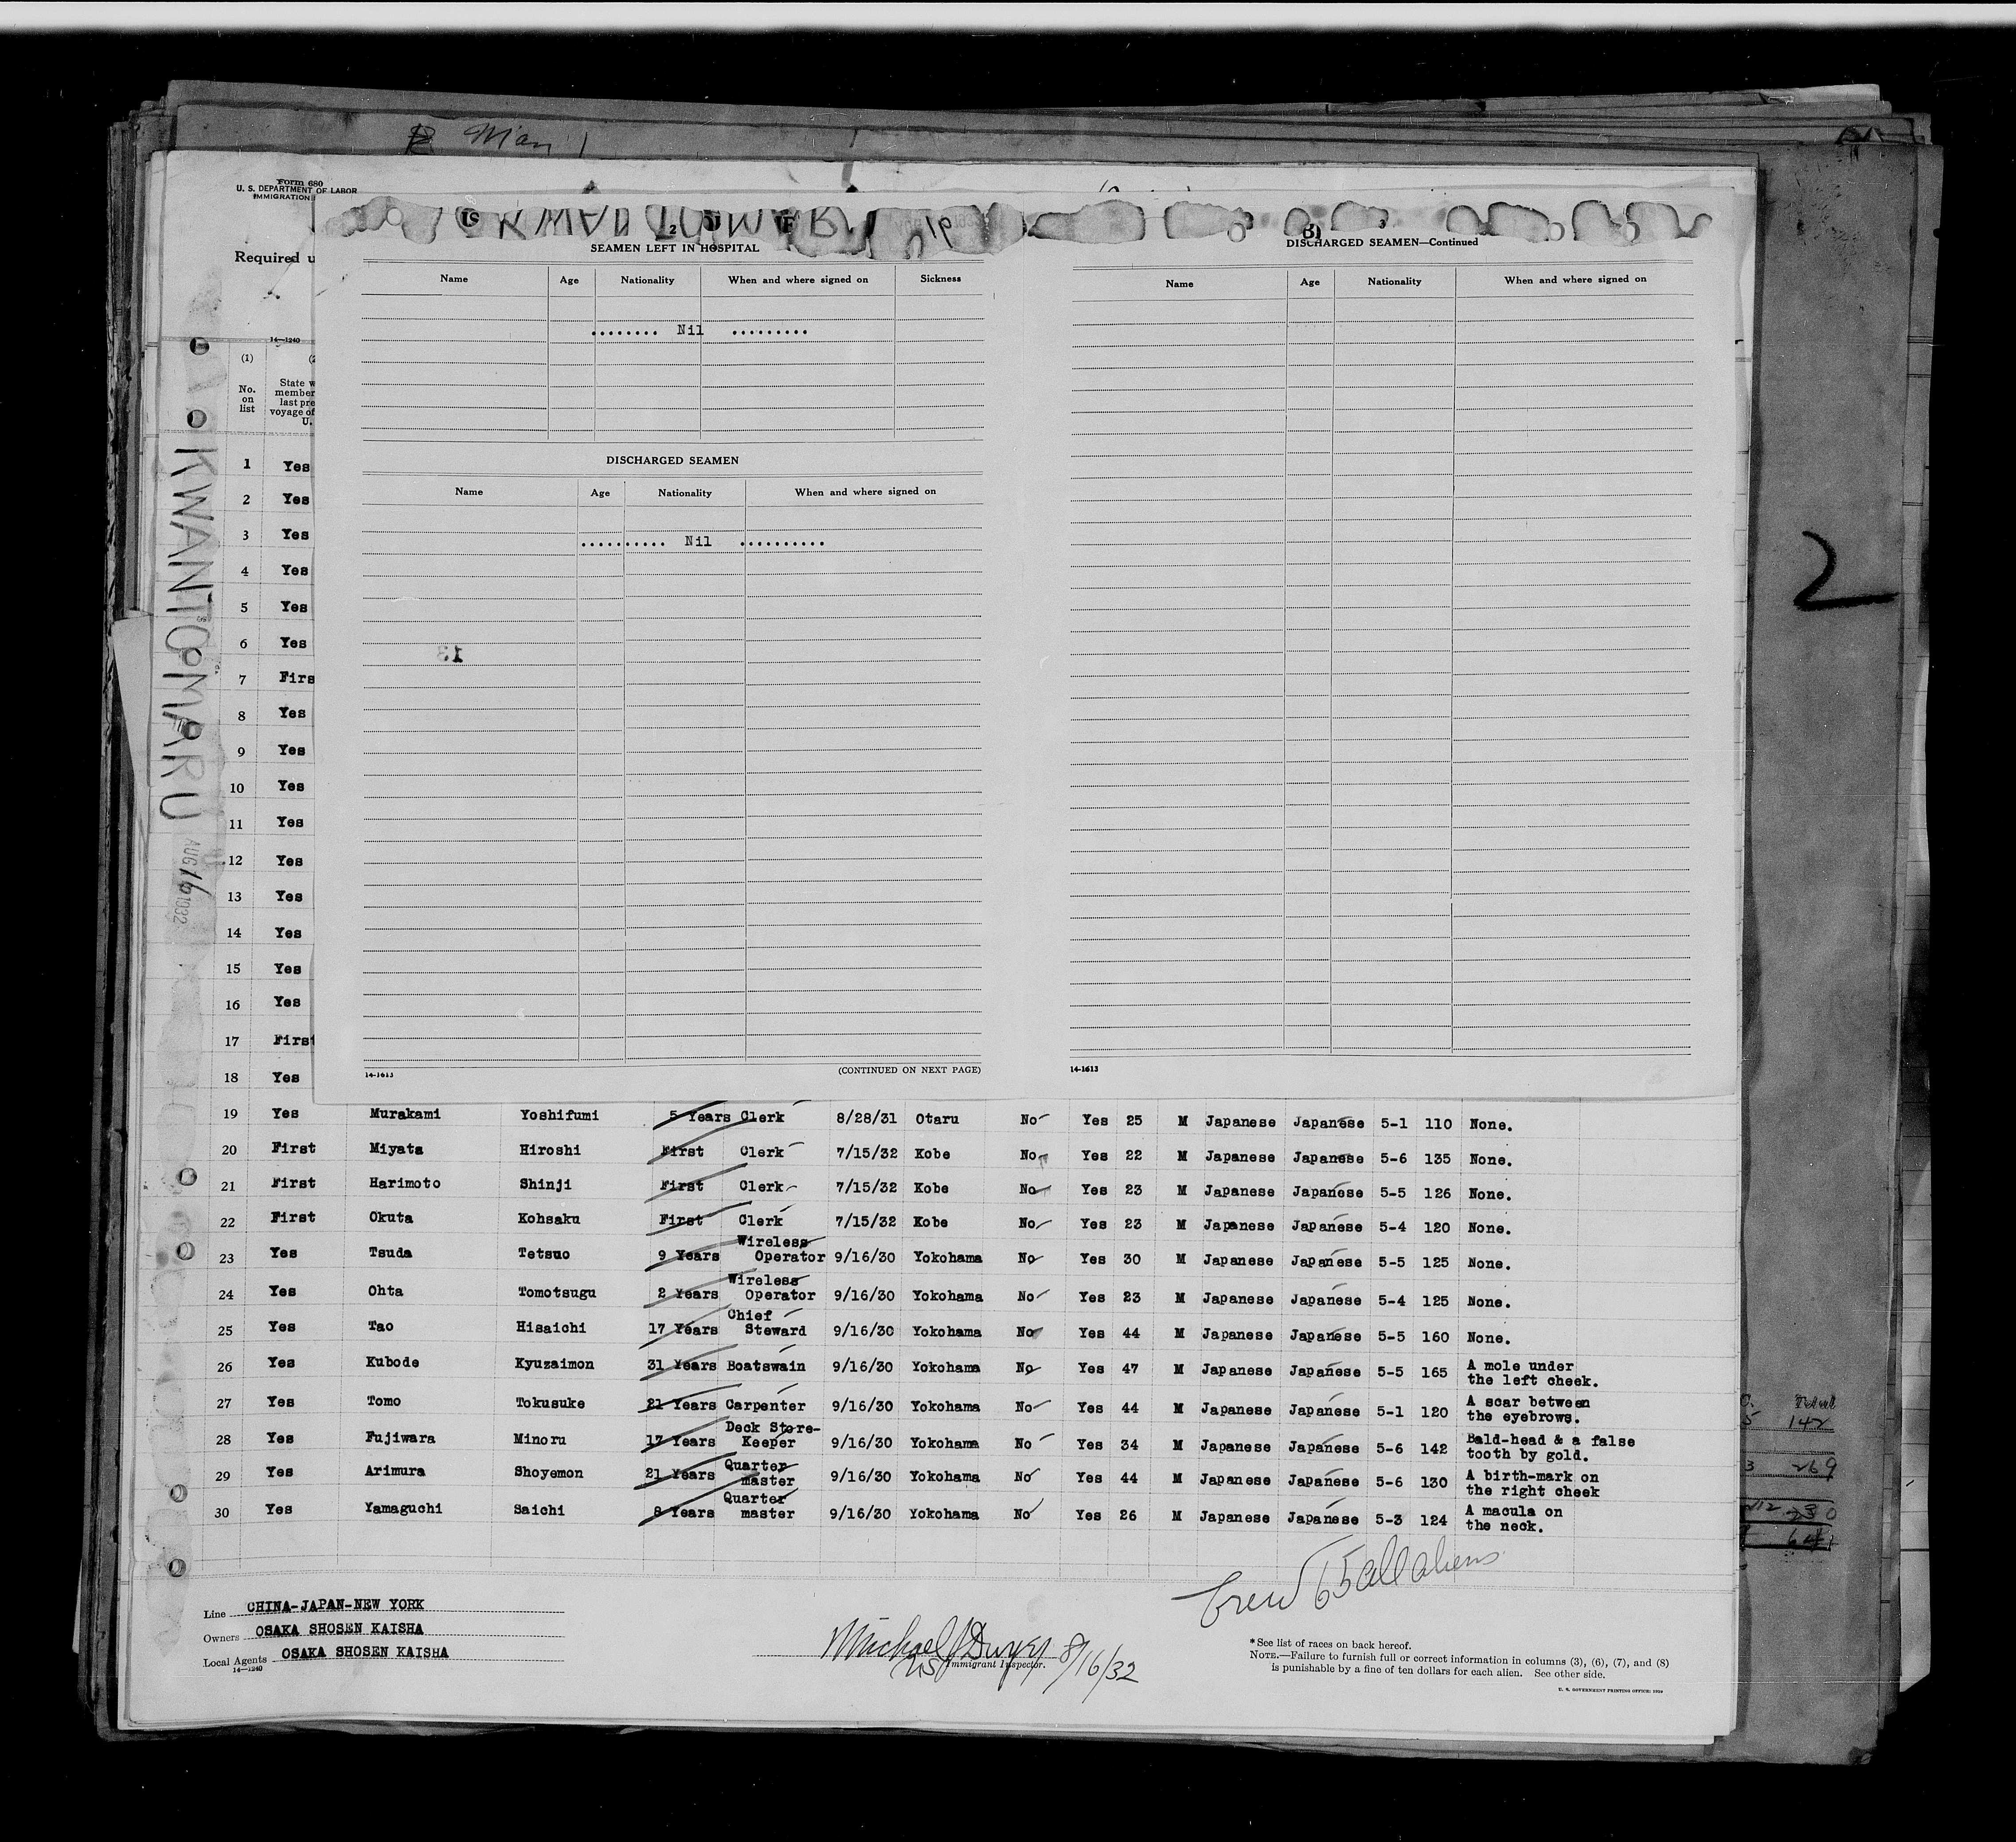 Man
Form 680
U. S. DEPARTMENT OF LABOR
IMMIGRATION
Required u
14—1240
(1)
No. on list
State w
member
last pre
voyage of
U.
KWANTO MARU
AUG 16 1932
SEAMEN LEFT IN HOSPITAL
Name Age Nationality When and where signed on Sickness
........ Nil .........
DISCHARGED SEAMEN
Name Age Nationality When and where signed on
.......... Nil ..........
13
14-1613 (CONTINUED ON NEXT PAGE)
3
B)
DISCHARGED SEAMEN—Continued
Name Age Nationality When and where signed on
14-1613
2
1 Yes
2 Yes
3 Yes
4 Yes
5 Yes
6 Yes
7 Firs
8 Yes
9 Yes
10 Yes
11 Yes
12 Yes
13 Yes
14 Yes
15 Yes
16 Yes
17 First
18 Yes
19 Yes Murakami Yoshifumi 5 Years Clerk 8/28/31 Otaru No Yes 25 M Japanese Japanese 5-1 110 None.
20 First Miyata Hiroshi First Clerk 7/15/32 Kobe No Yes 22 M Japanese Japanese 5-6 135 None.
21 First Harimoto Shinji First Clerk 7/15/32 Kobe No Yes 23 M Japanese Japanese 5-5 126 None.
22 First Okuta Kohsaku First Clerk 7/15/32 Kobe No Yes 23 M Japanese Japanese 5-4 120 None.
23 Yes Tsuda Tetsuo 9 Years Wireless Operator 9/16/30 Yokohama No Yes 30 M Japanese Japanese 5-5 125 None.
24 Yes Ohta Tomotsugu 2 Years Wireless Operator 9/16/30 Yokohama No Yes 23 M Japanese Japanese 5-4 125 None.
25 Yes Tao Hisaichi 17 Years Chief Steward 9/16/30 Yokohama No Yes 44 M Japanese Japanese 5-5 160 None.
26 Yes Kubode Kyuzaimon 31 Years Boatswain 9/16/30 Yokohama No Yes 47 M Japanese Japanese 5-5 165 A mole under the left cheek.
27 Yes Tomo Tokusuke 21 Years Carpenter 9/16/30 Yokohama No Yes 44 M Japanese Japanese 5-1 120 A scar between the eyebrows.
28 Yes Fujiwara Minoru 17 Years Deck Store-Keeper 9/16/30 Yokohama No Yes 34 M Japanese Japanese 5-6 142 Bald-head & a false tooth by gold.
29 Yes Arimura Shoyemon 21 Years Quarter master 9/16/30 Yokohama No Yes 44 M Japanese Japanese 5-6 130 A birth-mark on the right cheek
30 Yes Yamaguchi Saichi 8 Years Quarter master 9/16/30 Yokohama No Yes 26 M Japanese Japanese 5-3 124 A macula on the neck.
Total
142
269
230
Crew 65 all aliens
Line CHINA-JAPAN-NEW YORK
Owners OSAKA SHOSEN KAISHA
Local Agents OSAKA SHOSEN KAISHA
14—1240
Michael J Dwyer 8/16/32
Immigrant Inspector.
*See list of races on back hereof.
NOTE.—Failure to furnish full or correct information in columns (3), (6), (7), and (8)
is punishable by a fine of ten dollars for each alien. See other side.
U. S. GOVERNMENT PRINTING OFFICE: 1929